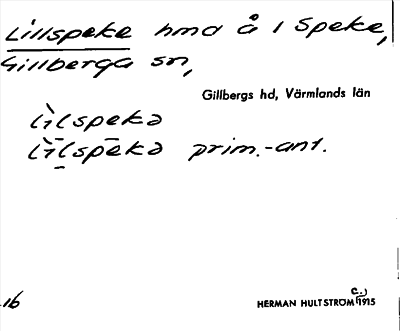 Lillspeke hmd å i Speke,
Gillberga sn,
Gillbergs hd, Värmlands län
prim.-ant.
16
c.)
HERMAN HULTSTRÖM 1915